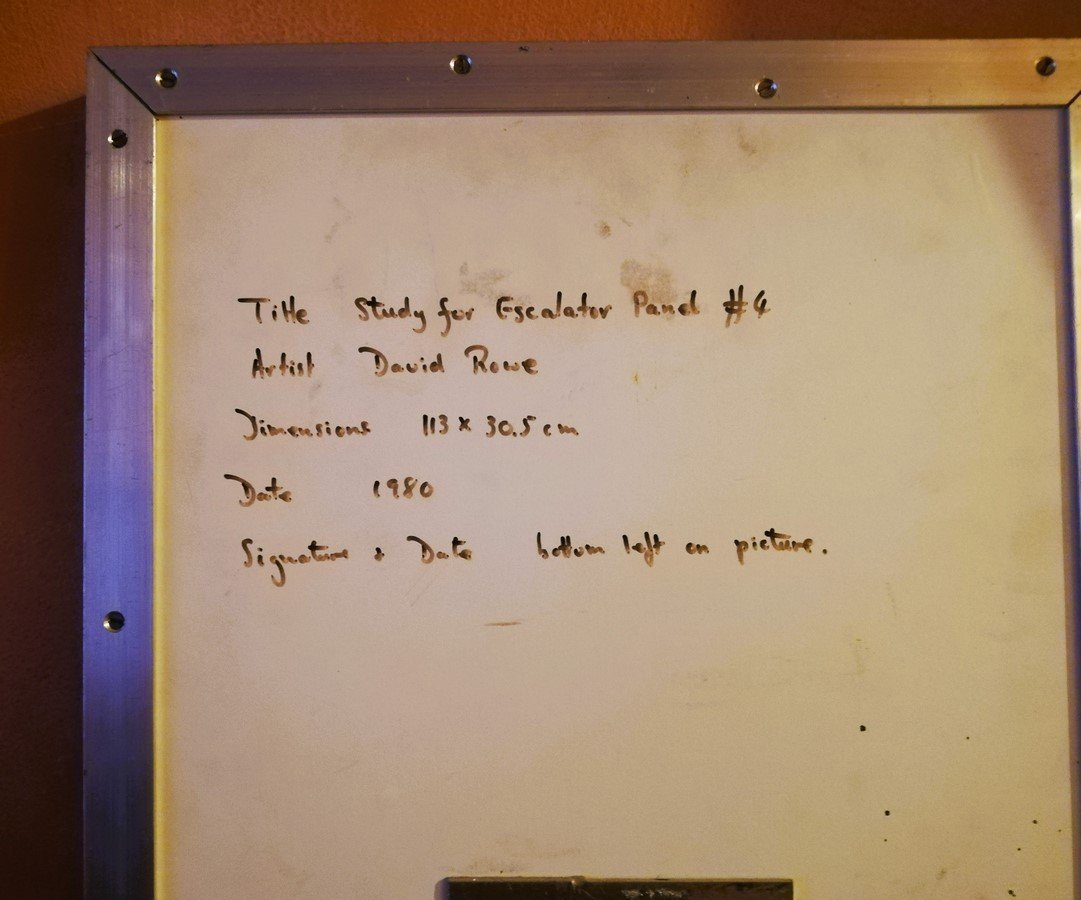 Title Study for Escalator Panel #4
Artist David Rowe
Dimensions 113 x 30.5 cm
Date 1980
Signature & Date bottom left on picture.